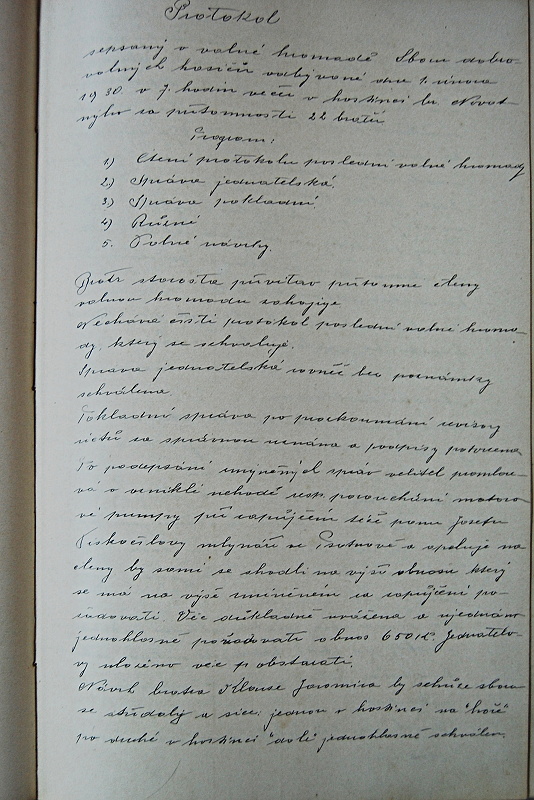 Protokol
sepsaný o valné hromadě Sboru dobro-
volných hasičů odbývané dne 1. února
1930. v 7. hodin večer v hostinci br. Novot-
nýho za přítomnosti 22 bratří
Program:
1) Čtení protokolu poslední valné hromady
2.) Správa jednatelská.
3) Správa pokladní.
4) Různé
5. Volné návrhy.
Bratr starosta přivítav přítomné členy
valnou hromadu zahajuje
Nechává čísti protokol poslední valné hroma-
dy, který se schvaluje.
Správa jednatelská rovněž bez poznámky
schválena
Pokladní správa po prozkoumání revisory
účtů za správnou uznána a podpisy potvrzena
Po podepsání zmyněných správ velitel promlou-
vá o vzniklé nehodě resp. porouchání motoro-
vé pumpy při zapůjčení téže panu Josefu
mlynáři ve a apeluje na
členy by sami se shodli na výši obnosu který
se má na výše zmíněném za zapůjčení po-
žadovati. Věc důkladně uvážena a ujednáno
jednohlasně požadovati obnos 650 Kč Jednatelo-
vy uloženo věc p obstarati.
Návrh bratra Klause Jaromíra by schůze sboru
se střídaly a sice: jednou v hostinci na "hoře"
po druhé v hostinci "dole" jednohlasně schválen.